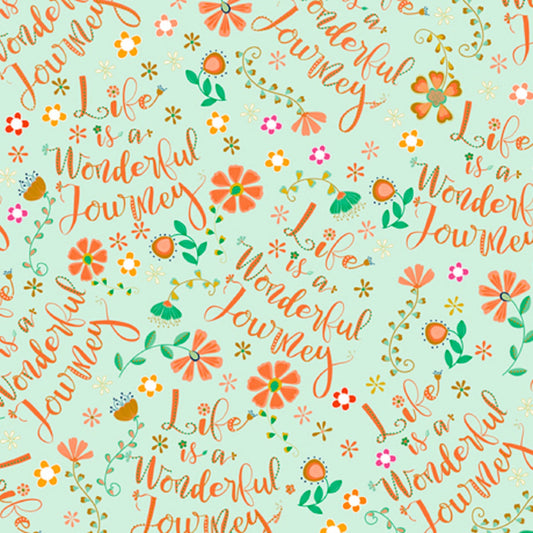 is a
Wonderful
Journey
Wonderful
Journey
Life
is a
Wonderful
Journey
Life
is a
Wonderful
Journey
Life
is a
Wonderful
Journey
is a
Wonderful
Journey
Life
is a
Wonderful
Journey
Life
is a
Wonderful
Journey